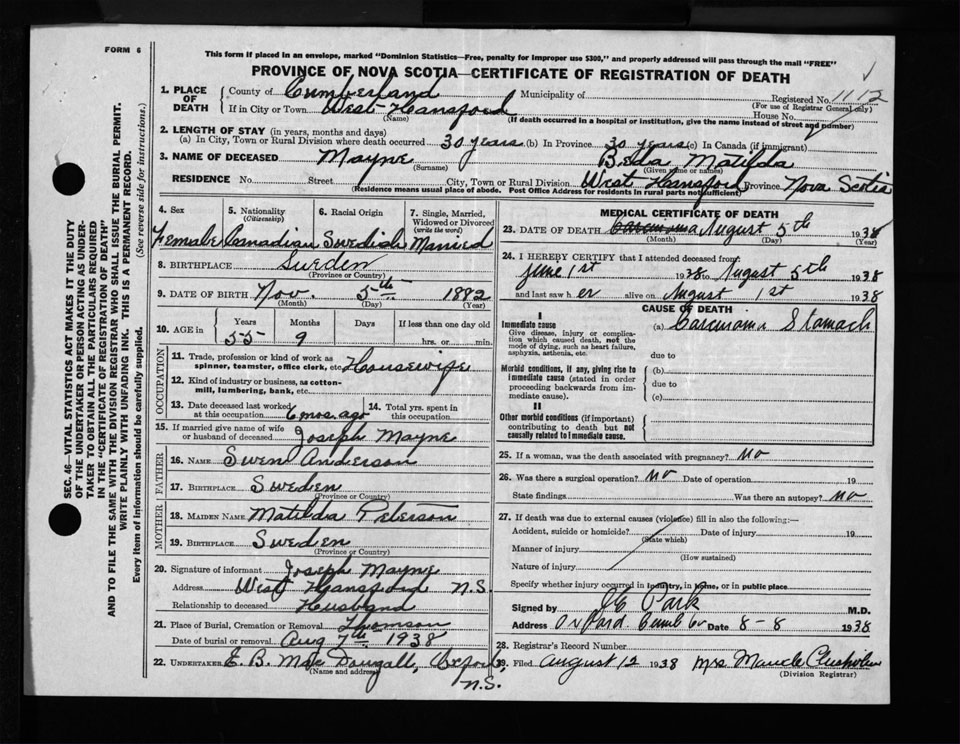 FORM 6
This form if placed in an envelope, marked "Dominion Statistics—Free, penalty for improper use $300," and properly addressed will pass through the mail "FREE"
PROVINCE OF NOVA SCOTIA—CERTIFICATE OF REGISTRATION OF DEATH
1. PLACE OF DEATH
County of Cumberland Municipality of Registered No. 1112
(For use of Registrar General only)
If in City or Town West Hansford House No.
(Name) (If death occurred in a hospital or institution, give the name instead of street and number)
2. LENGTH OF STAY (in years, months and days)
(a) In City, Town or Rural Division where death occurred 30 years (b) In Province 30 years (c) In Canada (if immigrant)
3. NAME OF DECEASED Mayne Beda Matilda
(Surname) (Given name or names)
RESIDENCE No. Street City, Town or Rural Division West Hansford Province Nova Scotia
(Residence means usual place of abode. Post Office Address for residents in rural parts not sufficient)
4. Sex 5. Nationality (Citizenship) 6. Racial Origin 7. Single, Married, Widowed or Divorced (write the word)
Female Canadian Swedish Married
8. BIRTHPLACE Sweden
(Province or Country)
9. DATE OF BIRTH Nov. 5th 1882
(Month) (Day) (Year)
10. AGE in Years Months Days If less than one day old
55 9 hrs. or min.
OCCUPATION
11. Trade, profession or kind of work as spinner, teamster, office clerk, etc. Housewife
12. Kind of industry or business, as cotton-mill, lumbering, bank, etc.
13. Date deceased last worked at this occupation 6 mos. ago 14. Total yrs. spent in this occupation.
15. If married give name of wife or husband of deceased Joseph Mayne
FATHER
16. NAME Swen Anderson
17. BIRTHPLACE Sweden
(Province or Country)
MOTHER
18. MAIDEN NAME Matilda Peterson
19. BIRTHPLACE Sweden
(Province or Country)
20. Signature of informant Joseph Mayne
Address West Hansford N.S.
Relationship to deceased Husband
21. Place of Burial, Cremation or Removal Thomson
Date of burial or removal Aug 7th 1938
22. UNDERTAKER E. B. MacDougall, Oxford,
(Name and address)
N.S.
MEDICAL CERTIFICATE OF DEATH
23. DATE OF DEATH Carcinoma August 5th 1938
(Month) (Day) (Year)
24. I HEREBY CERTIFY that I attended deceased from:
June 1st 1938 to August 5th 1938
and last saw her alive on August 1st 1938
CAUSE OF DEATH
I
Immediate cause (a) Carcinoma Stomach
Give disease, injury or complication which caused death, not the mode of dying, such as heart failure, asphyxia, asthenia, etc.
due to
Morbid conditions, if any, giving rise to immediate cause (stated in order proceeding backwards from immediate cause).
(b)
due to
(c)
II
Other morbid conditions (if important) contributing to death but not causally related to immediate cause.
25. If a woman, was the death associated with pregnancy? No
26. Was there a surgical operation? No Date of operation 19
State findings Was there an autopsy? No
27. If death was due to external causes (violence) fill in also the following:—
Accident, suicide or homicide? Date of injury 19
(State which)
Manner of injury
(How sustained)
Nature of injury
Specify whether injury occurred in industry, in home, or in public place
Signed by Park M.D.
Address Oxford Cumb Co Date 8-8 1938
28. Registrar's Record Number
29. Filed August 12 1938 Mrs Maude Chisholm
(Division Registrar)
SEC. 46—VITAL STATISTICS ACT MAKES IT THE DUTY
OF THE UNDERTAKER OR PERSON ACTING AS UNDER-
TAKER TO OBTAIN ALL THE PARTICULARS REQUIRED
IN THE "CERTIFICATE OF REGISTRATION OF DEATH"
AND TO FILE THE SAME WITH THE DIVISION REGISTRAR WHO SHALL ISSUE THE BURIAL PERMIT.
WRITE PLAINLY WITH UNFADING INK. THIS IS A PERMANENT RECORD.
Every item of information should be carefully supplied. (See reverse side for instructions.)